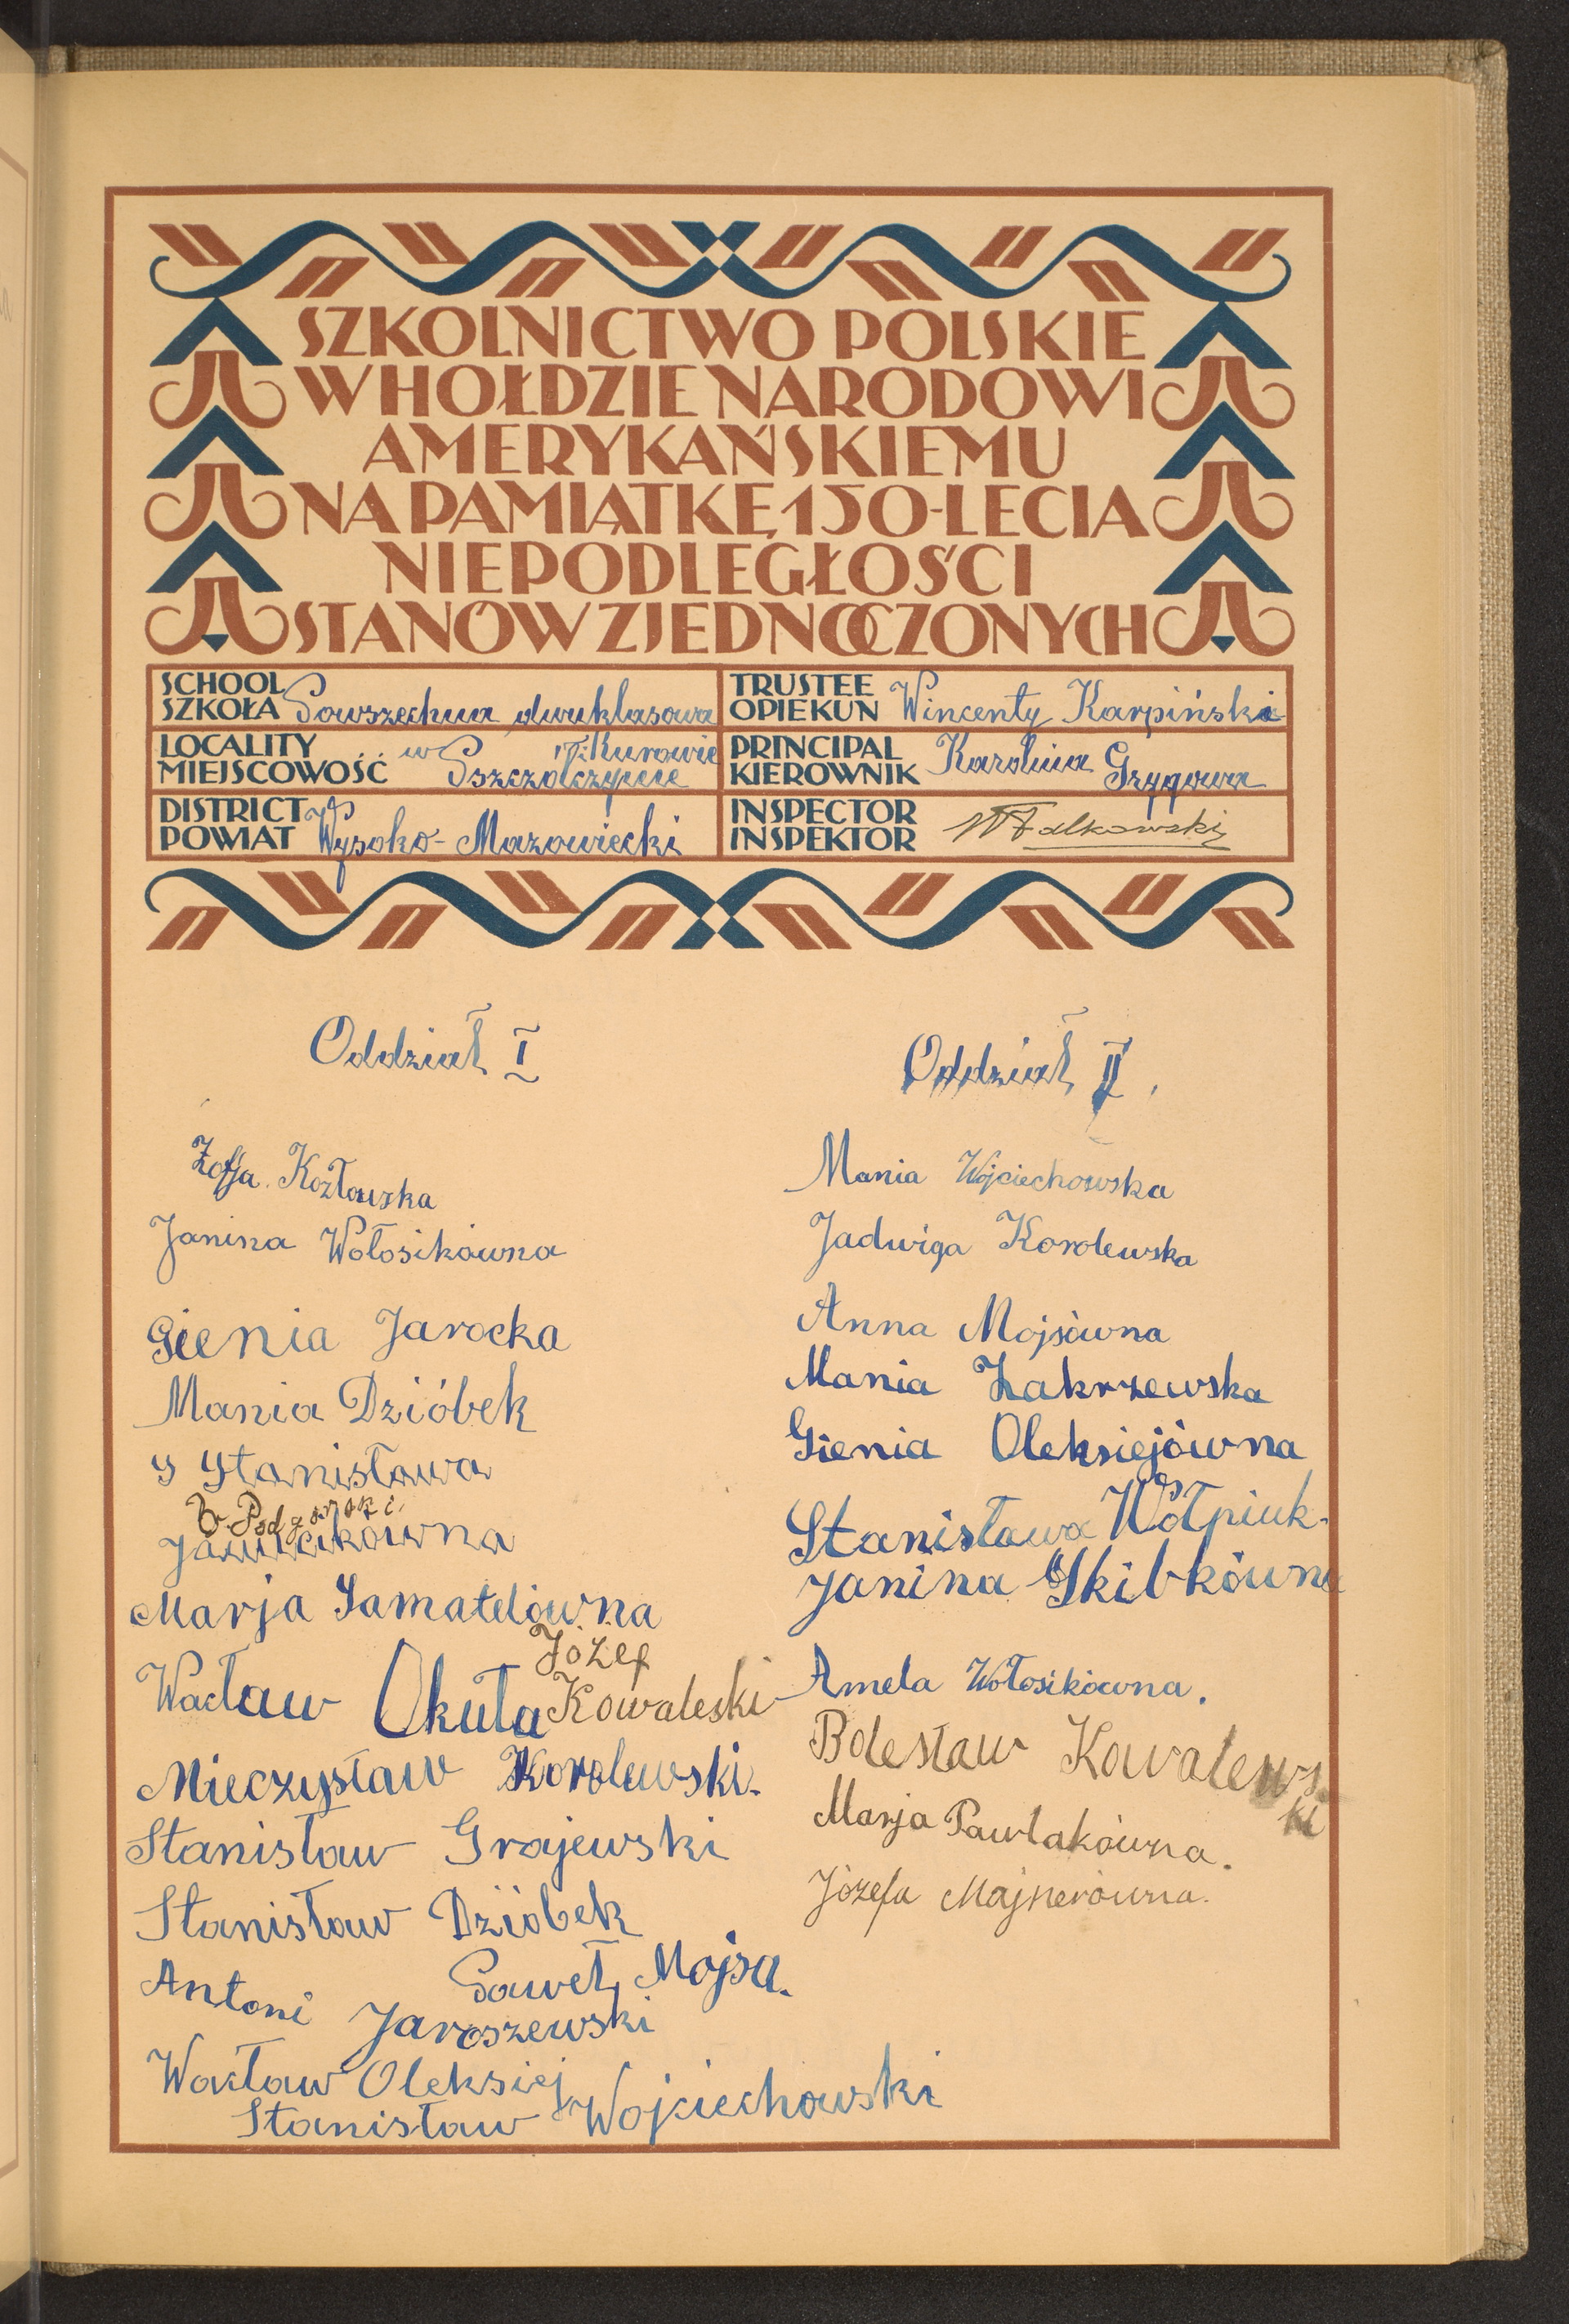 SZKOLNICTWO POLSKIE
W HOŁDZIE NARODOWI
AMERYKAŃSKIEMU
NA PAMIĄTKĘ 150-LECIA
NIEPODLEGŁOŚCI
STANÓW ZJEDNOCZONYCH
SCHOOL
SZKOŁA Powszechna dwuklasowa
TRUSTEE
OPIEKUN Wincenty Karpiński
LOCALITY
MIEJSCOWOŚĆ w Pszczółczynie Kurowie
PRINCIPAL
KIEROWNIK Karolina Grzygowa
DISTRICT
POWIAT Wysoko-Mazowiecki
INSPECTOR
INSPEKTOR Falkowski
Oddział I
Zofja Kozłowska
Janina Wołosikówna
Gienia Jarocka
Mania Dzióbek
S Stanisława
B. Podgórski
Marja Samatelówna
Józef
Wacław Okuła Kowaleski
Mieczysław Korolewski.
Stanisław Grajewski
Stanisław Dzióbek
Paweł Mojsa.
Antoni Jaroszewski
Wacław Oleksiej
Stanisław Wojciechowski
Oddział II.
Mania Wojciechowska
Jadwiga Korolewska
Anna Mojsówna
Mania Zakrzewska
Gienia Oleksiejówna
Stanisława Wołpiuk.
Janina Skibkówna
Amela Wołosikówna.
Bolesław Kowalews
ki
Marja Pawlakówna.
Józefa Majnerówna.